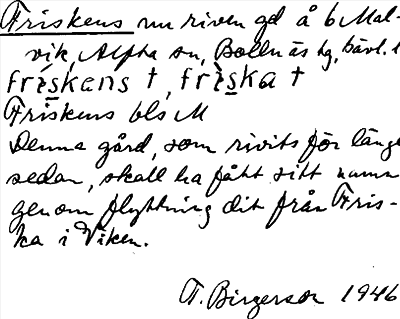 Friskens nu riven gd å 6 Mal-
vik, Alfta sn, Bollnäs tg, Gävl. l
friskens †, friska †
Friskens bls M
Denna gård, som rivits för länge
sedan, skall ha fått sitt namn
genom flyttning dit från Fris-
ka i Viken.
T. Birgerson 1946